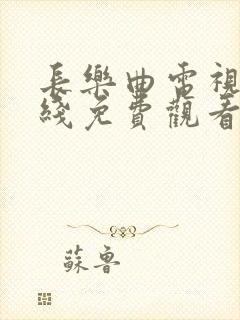 長樂曲電視
綫免費觀看
蘇魯